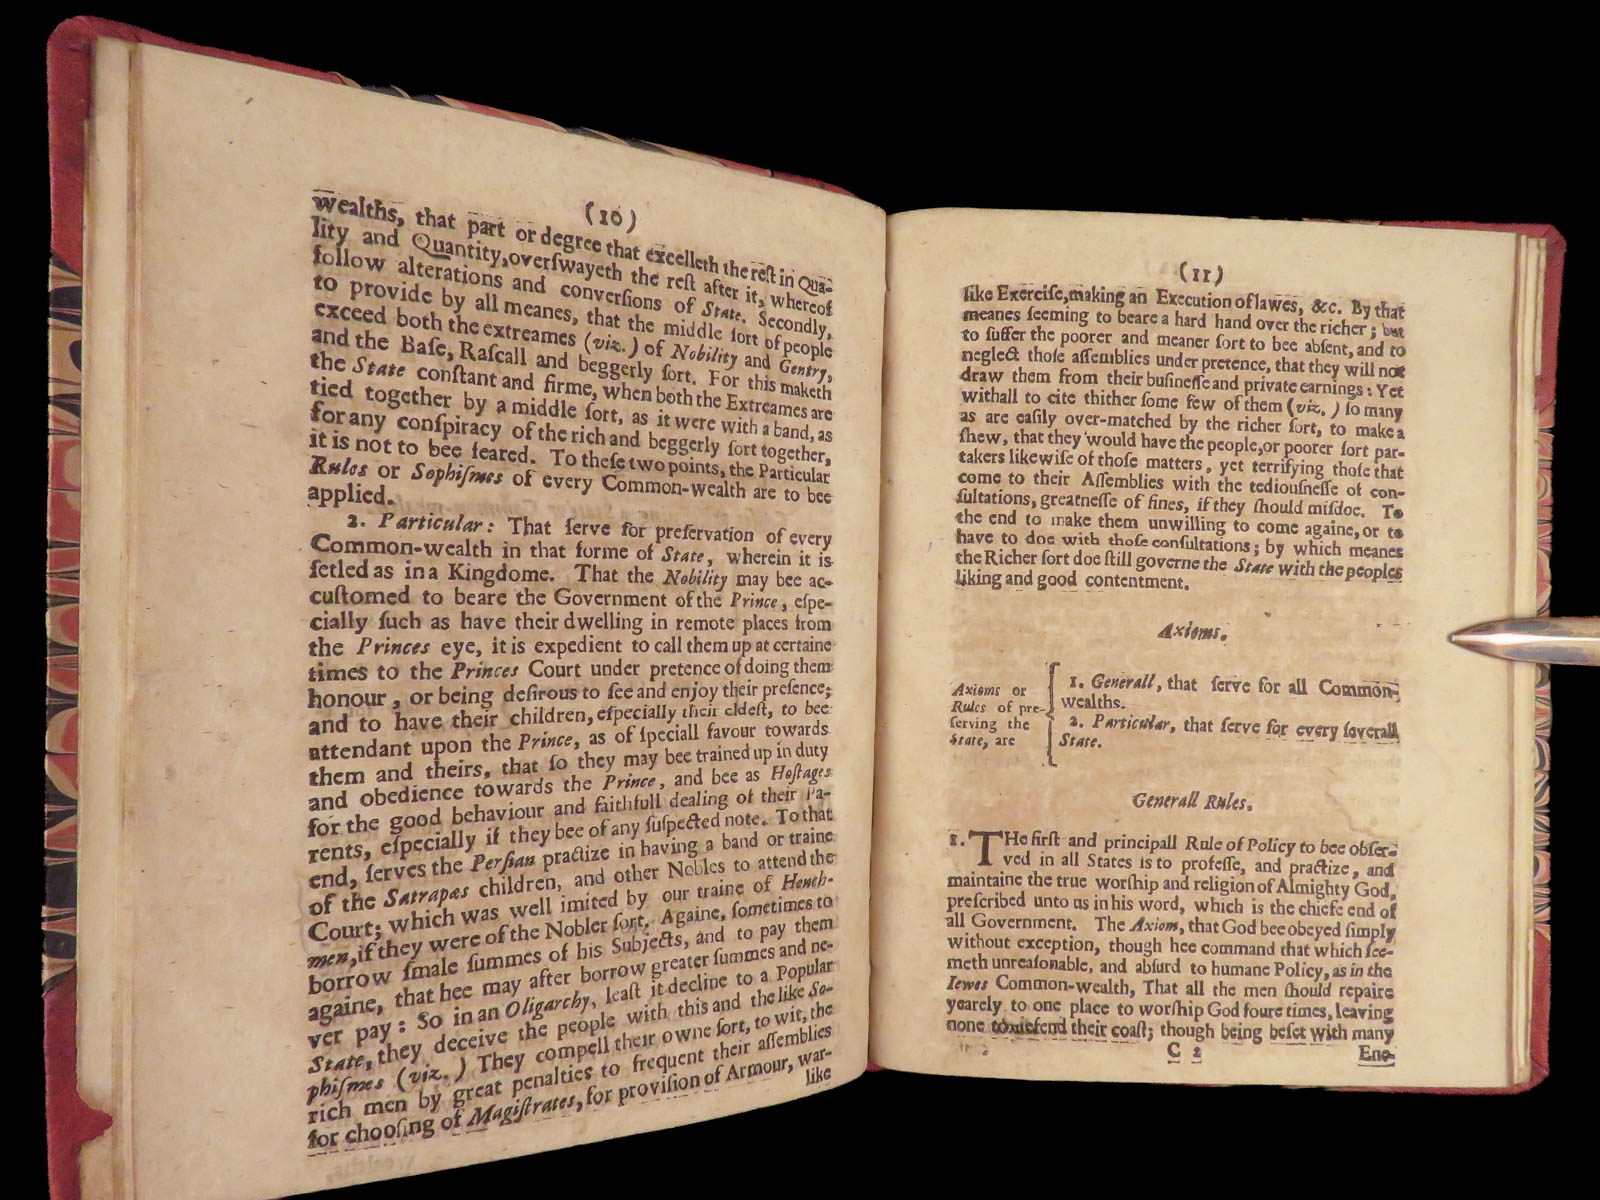 (10)
wealths, that part or degree that excelleth the reſt in Qua-
lity and Quantity, overſwayeth the reſt after it, whereof
follow alterations and converſions of State. Secondly,
to provide by all meanes, that the middle ſort of people
exceed both the extreames (viz.) of Nobility and Gentry,
and the Baſe, Raſcall and beggerly ſort. For this maketh
the State conſtant and firme, when both the Extreames are
tied together by a middle ſort, as it were with a band, as
for any conſpiracy of the rich and beggerly ſort together,
it is not to bee feared. To theſe two points, the Particular
Rules or Sophiſmes of every Common-wealth are to bee
applied.
2. Particular: That ſerve for preſervation of every
Common-wealth in that forme of State, wherein it is
ſetled as in a Kingdome. That the Nobility may bee ac-
cuſtomed to beare the Government of the Prince, eſpe-
cially ſuch as have their dwelling in remote places from
the Princes eye, it is expedient to call them up at certaine
times to the Princes Court under pretence of doing them
honour, or being deſirous to ſee and enjoy their preſence;
and to have their children, eſpecially their eldeſt, to bee
attendant upon the Prince, as of ſpeciall favour towards
them and theirs, that ſo they may bee trained up in duty
and obedience towards the Prince, and bee as Hoſtages
for the good behaviour and faithfull dealing of their Pa-
rents, eſpecially if they bee of any ſuſpected note. To that
end, ſerves the Perſian practize in having a band or traine
of the Satrapæs children, and other Nobles to attend the
Court; which was well imited by our traine of Hench-
men, if they were of the Nobler ſort. Againe, ſometimes to
borrow ſmale ſummes of his Subjects, and to pay them
againe, that hee may after borrow greater ſummes and ne-
ver pay: So in an Oligarchy, leaſt it decline to a Popular
State, they deceive the people with this and the like So-
phiſmes (viz.) They compell their owne ſort, to wit, the
rich men by great penalties to frequent their aſſemblies
for chooſing of Magiſtrates, for proviſion of Armour, war-
like
(11)
like Exerciſe, making an Execution of lawes, &c. By that
meanes ſeeming to beare a hard hand over the richer; but
to ſuffer the poorer and meaner ſort to bee abſent, and to
neglect thoſe aſſemblies under pretence, that they will not
draw them from their buſineſſe and private earnings: Yet
withall to cite thither ſome few of them (viz.) ſo many
as are eaſily over-matched by the richer ſort, to make a
ſhew, that they would have the people, or poorer ſort par-
takers likewiſe of thoſe matters, yet terrifying thoſe that
come to their Aſſemblies with the tediouſneſſe of con-
ſultations, greatneſſe of fines, if they ſhould miſdoe. To
the end to make them unwilling to come againe, or to
have to doe with thoſe conſultations; by which meanes
the Richer ſort doe ſtill governe the State with the peoples
liking and good contentment.
Axioms.
Axioms or
Rules of pre-
ſerving the
State, are
1. Generall, that ſerve for all Common-
wealths.
2. Particular, that ſerve for every ſeverall
State.
Generall Rules.
1. THe firſt and principall Rule of Policy to bee obſer-
ved in all States is to profeſſe, and practize, and
maintaine the true worſhip and religion of Almighty God,
preſcribed unto us in his word, which is the chiefe end of
all Government. The Axiom, that God bee obeyed ſimply
without exception, though hee command that which ſee-
meth unreaſonable, and abſurd to humane Policy, as in the
Iewes Common-wealth, That all the men ſhould repaire
yearely to one place to worſhip God foure times, leaving
none to defend their coaſt; though being beſet with many
C 2
Ene-